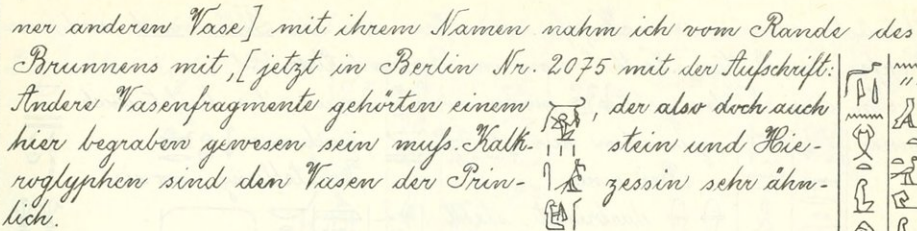 ner anderen Vase] mit ihrem Namen nahm ich vom Rande des
Brunnens mit, [jetzt in Berlin Nr. 2075 mit der Aufschrift:
Andere Vasenfragmente gehörten einem , der also doch auch
hier begraben gewesen sein muſs. Kalk- stein und Hie-
roglyphen sind den Vasen der Prin- zessin sehr ähn-
lich.